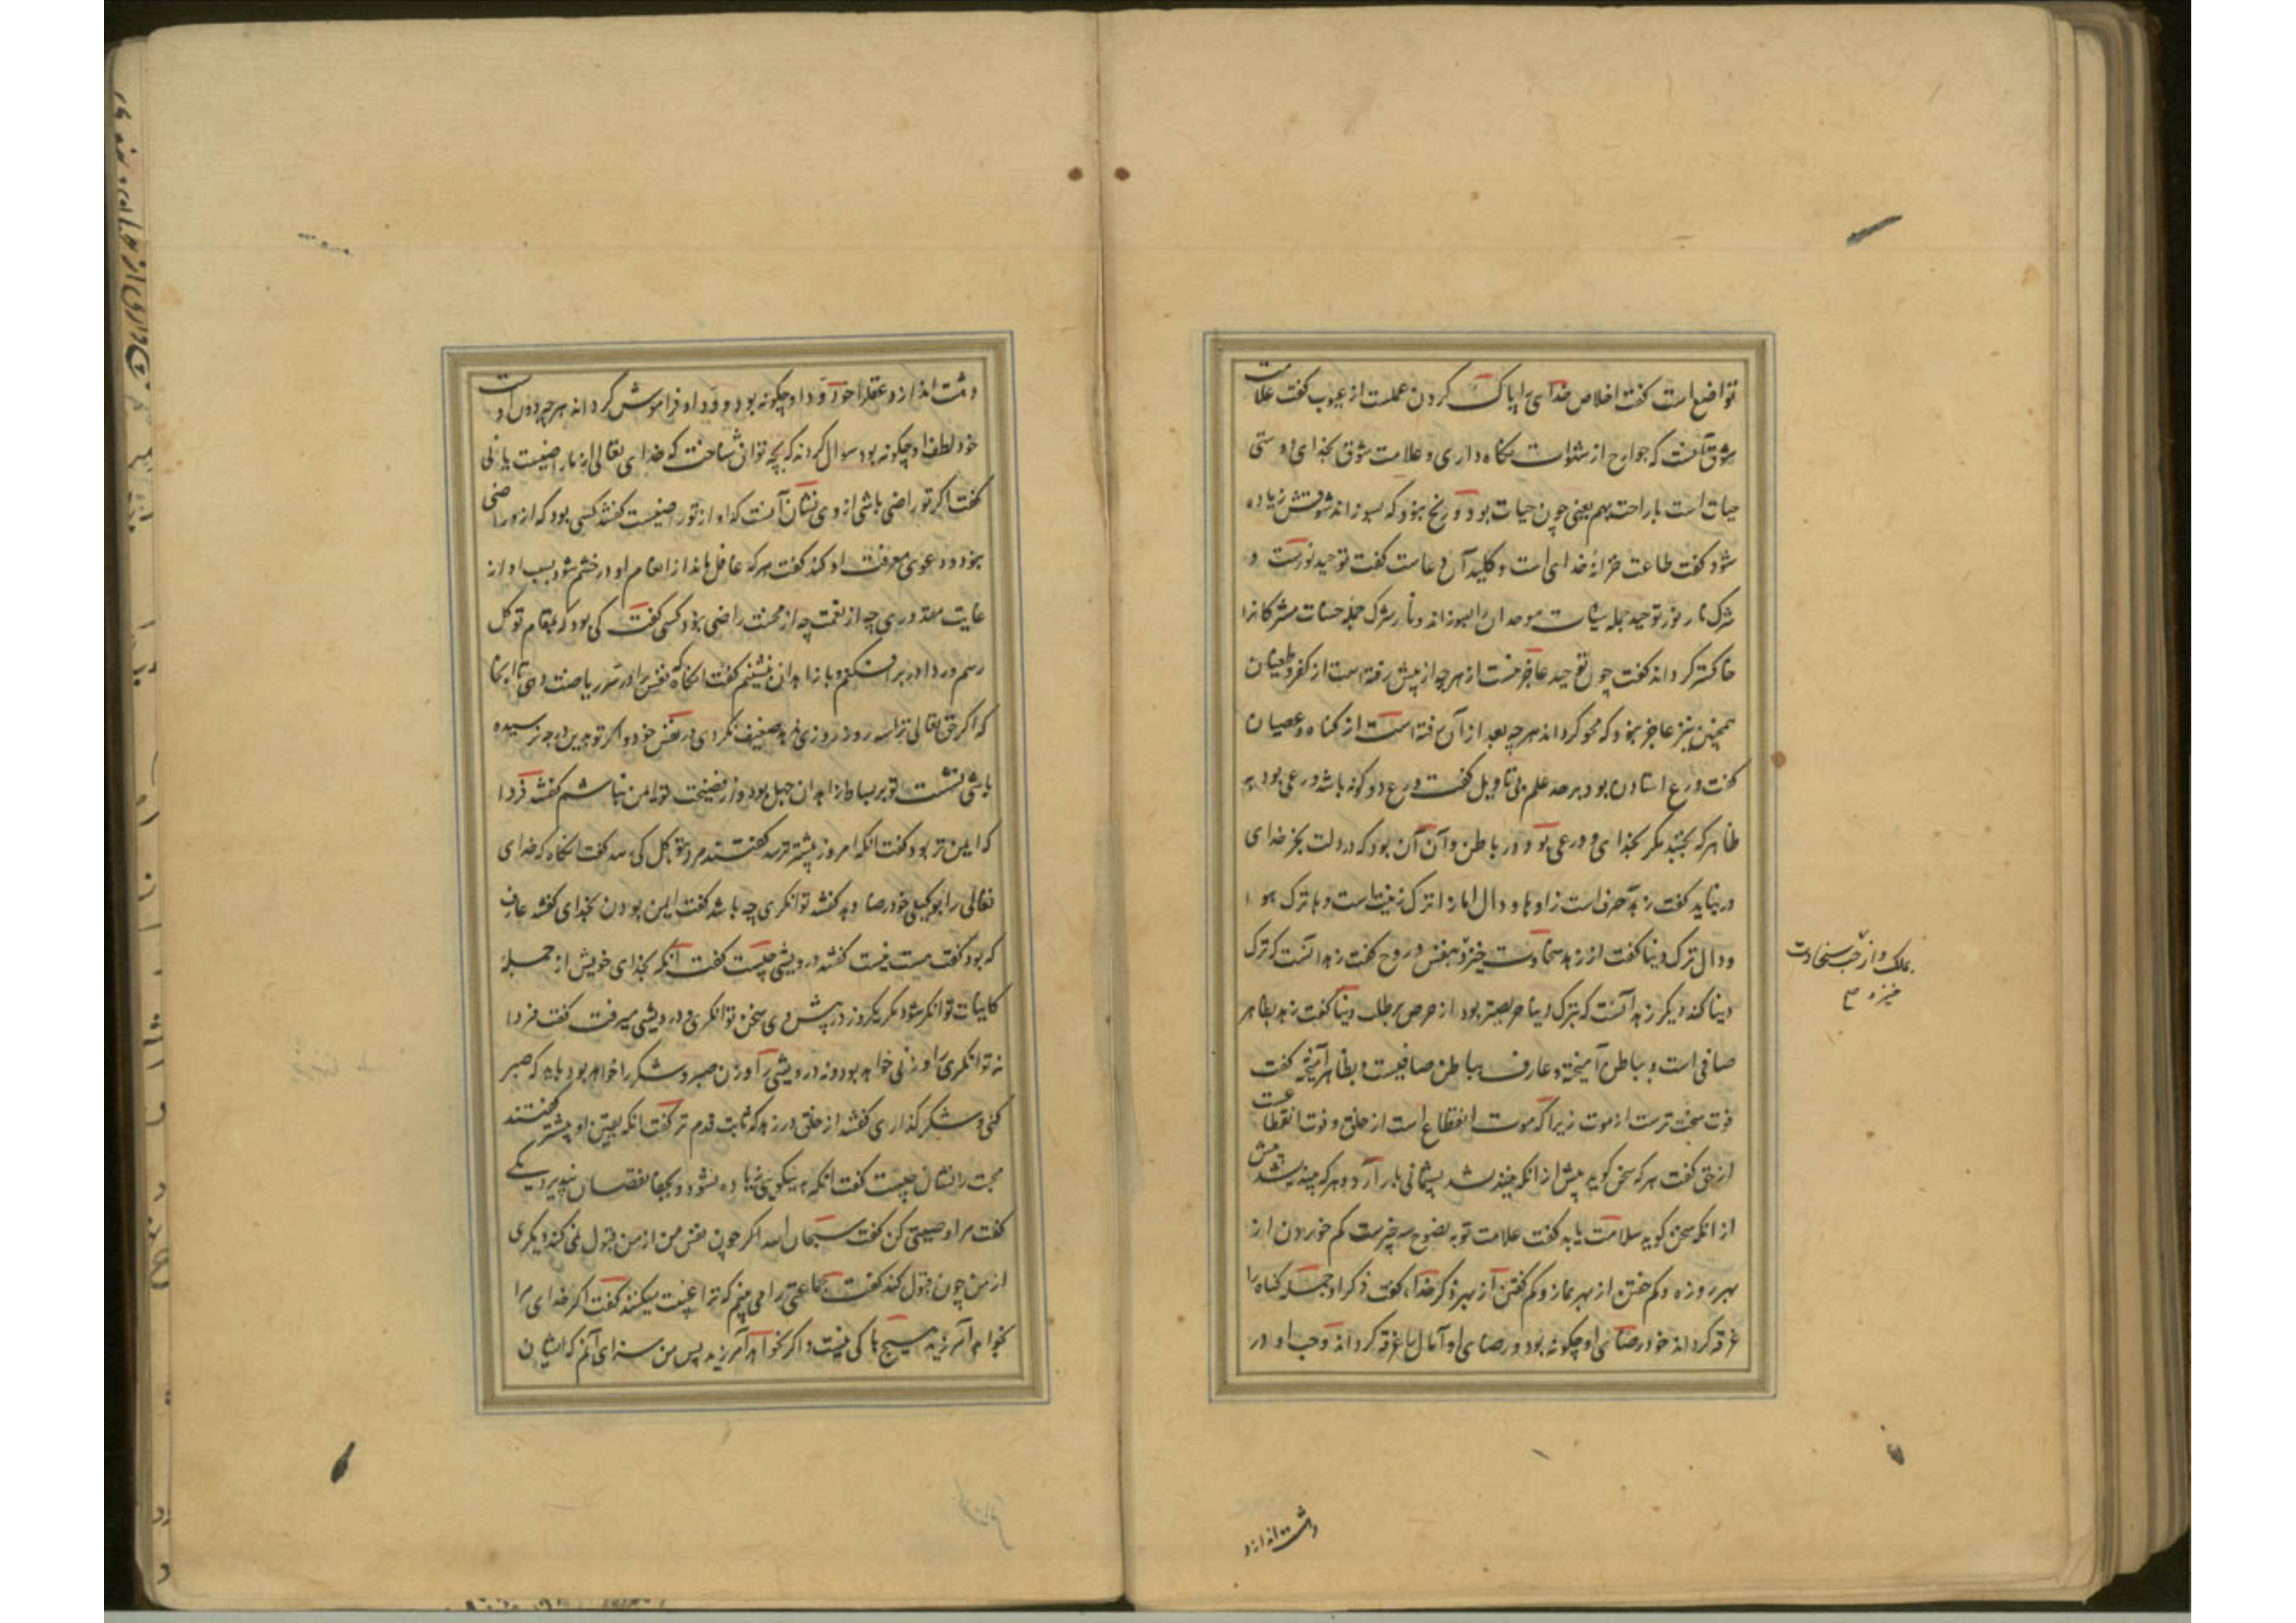 تواضع است گفت اخلاص خدای را پاک کردن عملست از عیوب گفت علامت
شوق آنست که جوارح از شهوات نگاه داری و علامت شوق بخدای دوستی
حیات است با راحت بهم یعنی چون حیات بود و رنج نبود که بسوزاند شوقش زیاده
شود گفت طاعت خزانهٔ خدای است و کلید آن دعاست گفت توحید نورست و
شرک نار نور توحید جمله سیات موحدان را بسوزاند و نار شرک جمله حسنات مشرکانرا
خاکستر گرداند گفت چون توحید عاجز نیست از هر چه از پیش رفته است از کفر و طغیان
همچنین نیز عاجز نبود که محو گرداند هر چه بعد از آن رفته است از گناه و عصیان
گفت ورع استادن بود بر حد علم بی تاویل گفت ورع دو گونه باشد ورعی بود به
ظاهر که نجنبد مگر بخدای و ورعی بود در باطن و آن آن بود که در دلت بجز خدای
در نیاید گفت زهد سه حرف است زا و ها و دال اما زا ترک زینت است و ها ترک هوا
و دال ترک دنیا گفت از زهد سخاوت خیزد بنفس و روح گفت زهد آنست که ترک
دنیا کند دیگر زهد آنست که بترک دنیا حریصتر بود از حرص بر طلب دنیا گفت زهد بظاهر
صافی است و بباطن آمیخته و عارف بباطن صافیست و بظاهر آمیخته گفت
فوت سخت ترست از موت زیرا که موت انقطاع است از خلق و فوت انقطاعست
از حق گفت هر که سخن گوید پیش از آنکه بیندیشد پشیمانی بار آرد و هر که بیندیشد پیش
از آنکه سخن گوید سلامت یابد گفت علامت توبه نصوح سه چیزست کم خوردن از
بهر روزه و کم خفتن از بهر نماز و کم گفتن از بهر ذکر خدا گفت ذکر او جمله گناه را
غرقه گرداند خود رضای او چگونه بود و رضای او آمال را غرقه گرداند و حب او در
بملک و از حب سخاوت
خیزد
دهشت اندازد
دهشت اندازد و عقلها خود ود او چگونه بود و ود او فراموش گرداند هر چه دون اوست
خود لطف او چگونه بود سوال کردند که بچه توان شناخت که خدای تعالی از ما راضیست یا نی
گفت اگر تو راضی باشی از وی نشان آنست که او از تو راضیست گفتند کسی بود که از وی راضی
نبود و دعوی معرفت او کند گفت هر که غافل ماند از انعام او در خشم شود بسبب او از
گفت کی بود که بمقام توکل
رسم و ردا در بر افکنم و با زاهدان بنشینم گفت آنگاه که نفس را در سر ریاضت دهی تا آنجا
که اگر حق تعالی ترا سه روز روزی ندهد ضعیف نگردی در نفس خود و اگر تو بدین درجه نرسیده
باشی نشست تو بر بساط زاهدان جهل بود و از فضیحت تو ایمن نباشم گفتند فردا
که ایمن تر بود گفت آنکه امروز بیشتر ترسد گفتند مرد بتوکل کی رسد گفت آنگاه که خدای
تعالی را بوکیلی خود رضا دهد گفتند توانگری چه باشد گفت ایمن بودن بخدای گفتند عارف
که بود گفت هست نیست گفتند درویشی چیست گفت آنکه بخدای خویش از جمله
کاینات توانگر شود مگر یکروز در پیش وی سخن توانگری و درویشی میرفت گفت فردا
نه توانگری را وزنی خواهد بود و نه درویشی را وزن صبر و شکر را خواهد بود باید که صبر
کنی و شکر گذاری گفتند از خلق در زهد که ثابت قدم تر گفت آنکه یقین او بیشتر گفتند
محبت را نشان چیست گفت آنکه به نیکویی زیاده نشود و بجفا نقصان نپذیرد یکی
گفت مرا وصیتی کن گفت سبحان الله اگر چون نفس من از من قبول نمی کند دیگری
از من چون قبول کند گفت جماعتی را می بینم که ترا غیبت میکنند گفت اگر خدای مرا
بخواهد آمرزید هیچ باکی نیست و اگر نخواهد آمرزید پس من سزای آنم که ایشان